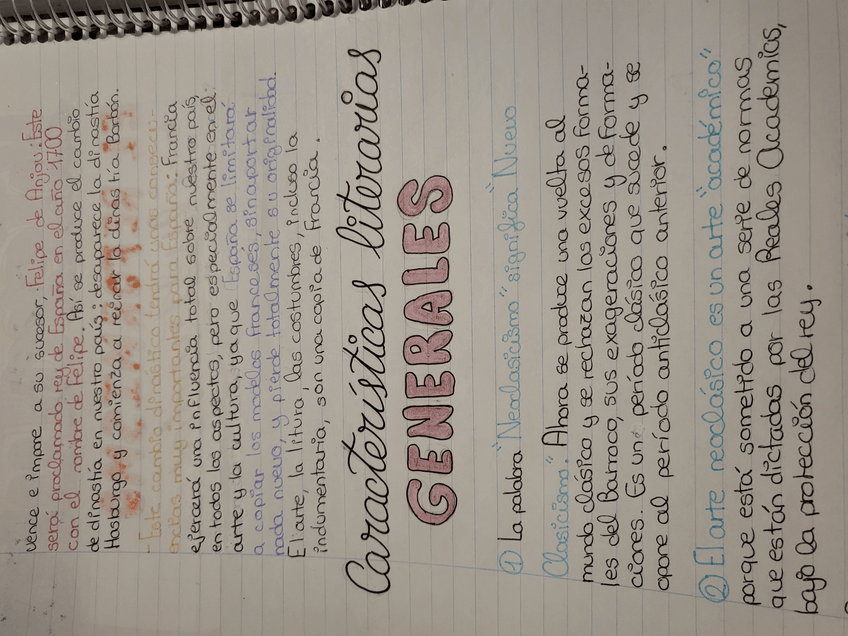 vence e impone a su sucesor, Felipe de Anjou. Este
será proclamado rey de España en el año 1700
con el nombre de Felipe. Así se produce el cambio
de dinastía en nuestro país: desaparece la dinastía
Hasburgo y comienza a reinar la dinastía Borbón.
- Este cambio dinástico tendrá unas consecu-
encias muy importantes para España: Francia
ejercerá una influencia total sobre nuestro país,
en todos los aspectos, pero especialmente en el
arte y la cultura, ya que España se limitará
a copiar los modelos franceses, sin aportar
nada nuevo, y pierde totalmente su originalidad.
El arte, la litura, las costumbres, incluso la
indumentaria, son una copia de Francia.
Características literarias
GENERALES
① La palabra "Neoclasicismo" significa "Nuevo
Clasicismo". Ahora se produce una vuelta al
mundo clásico y se rechazan los excesos forma-
les del Barroco, sus exageraciones y deforma-
ciones. Es un período clásico que sucede y se
opone al período anticlásico anterior.
② El arte neoclásico es un arte "académico"
porque está sometido a una serie de normas
que están dictadas por las Reales Academias,
bajo la protección del rey.